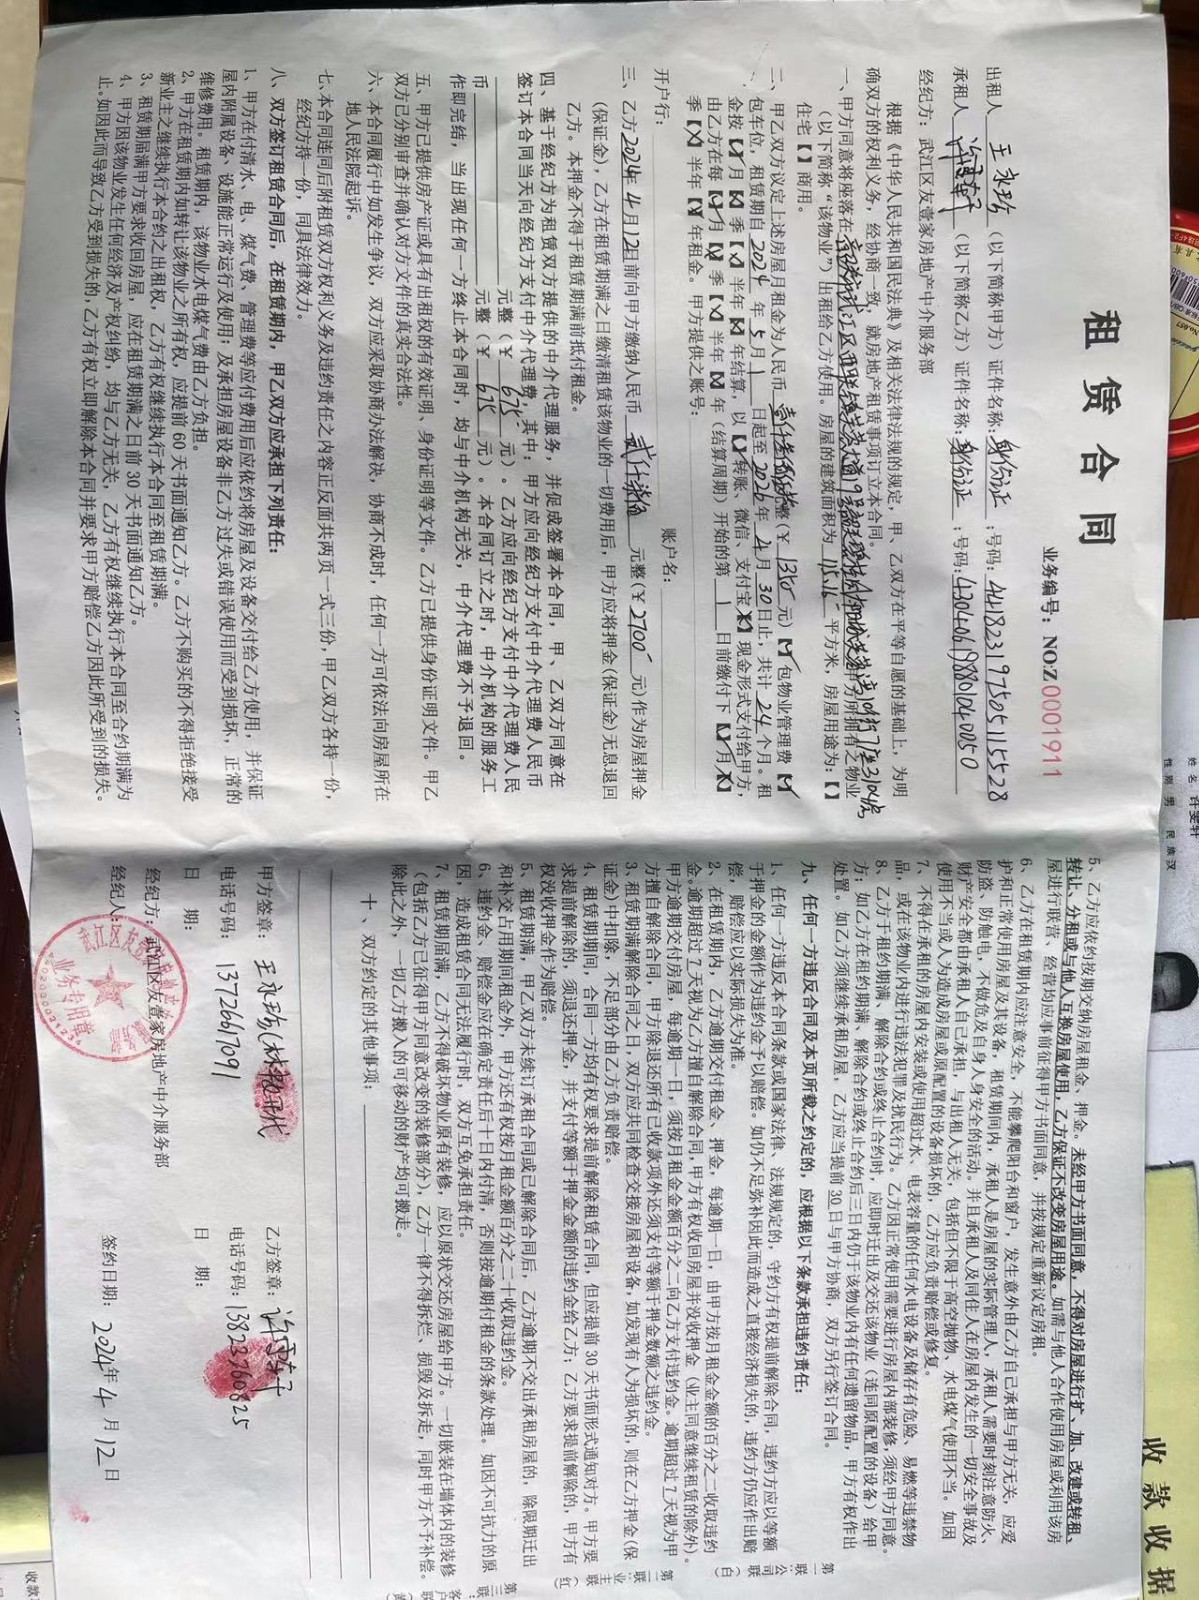 租赁合同
业务编号：NO:Z0001911
出租人 王永珍（以下简称甲方）证件名称：身份证；号码：441823197505115528
承租人（以下简称乙方）证件名称：身份证；号码：
经纪方：武江区友壹家房地产中介服务部
根据《中华人民共和国民法典》及相关法律法规的规定，甲、乙双方在平等自愿的基础上，为明
确双方的权利义务，经协商一致，就房地产租赁事项订立本合同。
一、甲方同意将座落在
（以下简称“该物业”）出租给乙方使用。房屋的建筑面积为 平方米，房屋用途为：【】
住宅【】商用。
二、甲乙双方议定上述房屋月租金为人民币 整（￥1350元）【】包物业管理费【】
包车位，租赁期自2024年5月1日起至2026年4月30日止，共计24个月。租
金按【】月【】季【】半年【】年结算，以【】转账、微信、支付宝【】现金形式支付给甲方，
由乙方在每【】月【】季【】半年【】年（结算周期）开始的第1日前缴付下【】月【】
季【】半年【】年租金。甲方提供之账号：
开户行： 账户名：
三、乙方2024年4月12日前向甲方缴纳人民币 贰仟柒佰 元整（￥2700元）作为房屋押金
（保证金），乙方在租赁期满之日缴清租赁该物业的一切费用后，甲方应将押金（保证金）无息退回
乙方。本押金不得于租赁期满前抵付租金。
四、基于经纪方为租赁双方提供的中介代理服务，并促成签署本合同，甲、乙双方同意在
签订本合同当天向经纪方支付中介代理费，其中：甲方应向经纪方支付中介代理费人民币
元整（￥675元）。乙方应向经纪方支付中介代理费人民
币 元整（￥675元）。本合同订立之时，中介机构的服务工
作即完结，当出现任何一方终止本合同时，均与中介机构无关，中介代理费不予退回。
五、甲方已提供房产证或具有出租权的有效证明、身份证明等文件。乙方已提供身份证明文件。甲乙
双方已分别审查并确认对方文件的真实合法性。
六、本合同履行中如发生争议，双方应采取协商办法解决，协商不成时，任何一方可依法向房屋所在
地人民法院起诉。
七、本合同连同后附租赁双方权利义务及违约责任之内容正反面共两页一式三份，甲乙双方各持一份，
经纪方持一份，同具法律效力。
八、双方签订租赁合同后，在租赁期内，甲乙双方应承担下列责任：
1、甲方在付清水、电、煤气费、管理费等应付费用后应依约将房屋及设备交付给乙方使用，并保证
屋内附属设备、设施能正常运行及使用；及承担房屋设备非乙方过失或错误使用而受到损坏，正常的
维修费用。租赁期内，该物业水电煤气费由乙方负担。
2、甲方在租赁期内如转让该物业之所有权，应提前60天书面通知乙方。乙方不购买的不得拒绝接受
新业主之继续执行本合约之出租权，乙方有权继续执行本合同至租赁期满。
3、租赁期届满甲方要求收回房屋，应在租赁期满之日前30天书面通知乙方。
4、甲方因该物业发生任何经济及产权纠纷，均与乙方无关，乙方有权继续执行本合同至合约期满为
止。如因此而导致乙方受到损失的，乙方有权立即解除本合同并要求甲方赔偿乙方因此所受到的损失。
5、乙方应依约按期交纳房屋租金，押金。未经甲方书面同意，不得对房屋进行扩、加、改建或转租、
转让、分租或与他人互换房屋使用，乙方保证不改变房屋用途。如需与他人合作使用房屋或利用该房
屋进行联营、经营均应事前征得甲方书面同意，并按规定重新议定房租。
6、乙方在租赁期内应注意安全，不能攀爬阳台和窗户，发生意外由乙方自己承担与甲方无关，应爱
护和正常使用房屋及其设备，租赁期间内，承租人是房屋的实际管理人，承租人需要时刻注意防火、
防盗、防触电，不做危及自身人身安全的活动。并且承租人及同住人在房屋内发生的一切安全事故及
财产安全都由承租人自己承担，与出租人无关，包括但不限于高空抛物、水电煤气使用不当。如因
使用不当或人为造成房屋或原配置的设备损坏的，乙方应负责赔偿或修复。
7、不得在承租的房屋内安装或使用超过水、电表容量的任何水电设备及储存有危险、易燃等违禁物
品，或在该物业内进行违法犯罪及扰民行为。乙方因正常使用需要进行房屋内部装修，须经甲方同意。
8、乙方于租约期满、解除合约或终止合约时，应即时迁出及交还该物业（连同原配置的设备）给甲
方；如乙方在租约期满、解除合约或终止合约后三日内仍于该物业内有任何遗留物品，甲方有权作出
处置。如乙方须继续承租房屋，乙方应当提前30日与甲方协商，双方另行签订合同。
九、任何一方违反合同及本页所载之约定的，应根据以下条款承担违约责任：
1、任何一方违反本合同条款或国家法律、法规规定的，守约方有权提前解除合同，违约方应以等额
于押金的金额作为违约金予以赔偿。如仍不足弥补因此而造成之直接经济损失的，违约方仍应作出赔
偿，赔偿应以实际损失为准。
2、在租赁期内，乙方逾期交付租金、押金，每逾期一日，由甲方按月租金金额的百分之二收取违约
金。逾期超过7天视为乙方擅自解除合同，甲方有权收回房屋并没收押金（业主同意继续租赁的除外）。
甲方逾期交付房屋，每逾期一日，须按月租金金额百分之二向乙方支付违约金。逾期超过7天视为甲
方擅自解除合同，甲方除退还所有已收款项外还须支付等额于押金数额之违约金。
3、租赁期满解除合同之日，双方应共同检查交接房屋和设备，如发现有人为损坏的，则在乙方押金（保
证金）中扣除，不足部分由乙方负责赔偿。
4、租赁期期间，合同一方均有权要求提前解除租赁合同，但应提前30天书面形式通知对方。甲方要
求提前解除的，须退还押金，并支付等额于押金金额的违约金给乙方；乙方要求提前解除的，甲方有
权没收押金作为赔偿。
5、租赁期满，甲乙双方未续订承租合同或已解除合同后，乙方逾期不交出承租房屋的，除限期迁出
和补交占用期间租金外，甲方还有权按月租金额百分之二十收取违约金。
6、违约金、赔偿金应在确定责任后十日内付清，否则按逾期付租金的条款处理。如因不可抗力的原
因，造成租赁合同无法履行时，双方互免承担责任。
7、租赁期届满，乙方不得破坏物业原有装修，应以原状交还房屋给甲方。一切嵌装在墙体内的装修
（包括乙方已征得甲方同意改变的装修部分），乙方一律不得拆烂、损毁及拆走，同时甲方不予补偿。
除此之外，一切乙方搬入的可移动的财产均可搬走。
十、双方约定的其他事项：
甲方签章：王永珍 乙方签章：
电话号码：13726617091 电话号码：13827360825
日 期： 日 期：
经纪方：武江区友壹家房地产中介服务部
经纪人： 签约日期：2024年4月12日
业务专用章
第一联 公司联（白）
第二联 业主联（红）
第三联 客户联（黄）
姓名 许雯轩
性别 男 民族 汉
收款收据